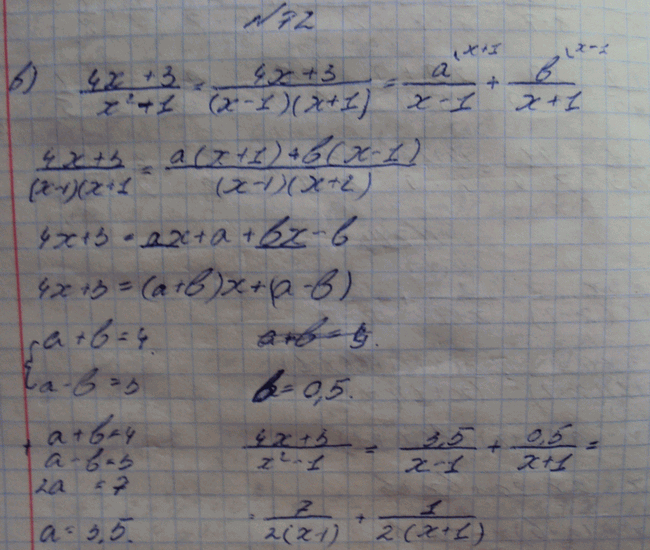 №72
в) (4x+3)/(x²+1) = (4x+3)/((x-1)(x+1)) = a^(x+1/(x-1) + b^(x-1/(x+1)
(4x+3)/((x-1)(x+1) = (a(x+1)+b(x-1))/((x-1)(x+2))
4x+3 = ax+a+bx-b
4x+3 = (a+b)x+(a-b)
{ a+b=4. a+b=4.
a-b=3 b=0,5.
+ a+b=4 (4x+3)/(x²-1) = 3,5/(x-1) + 0,5/(x+1) =
a-b=3
2a =7 = 7/(2(x-1)) + 1/(2(x+1))
a=3,5.